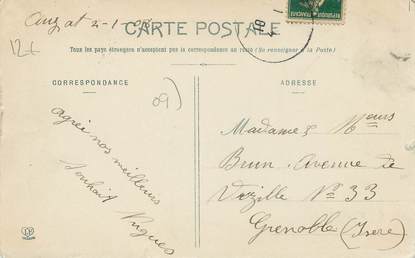 CARTE POSTALE
Tous les pays étrangers n'acceptent pas la correspondance au recto (Se renseigner à la Poste)
CORRESPONDANCE
ADRESSE
09)
agréé nos meilleurs
souhait
Madame
Brun Avenue de
Vizille N° 33
Grenoble (Isère)